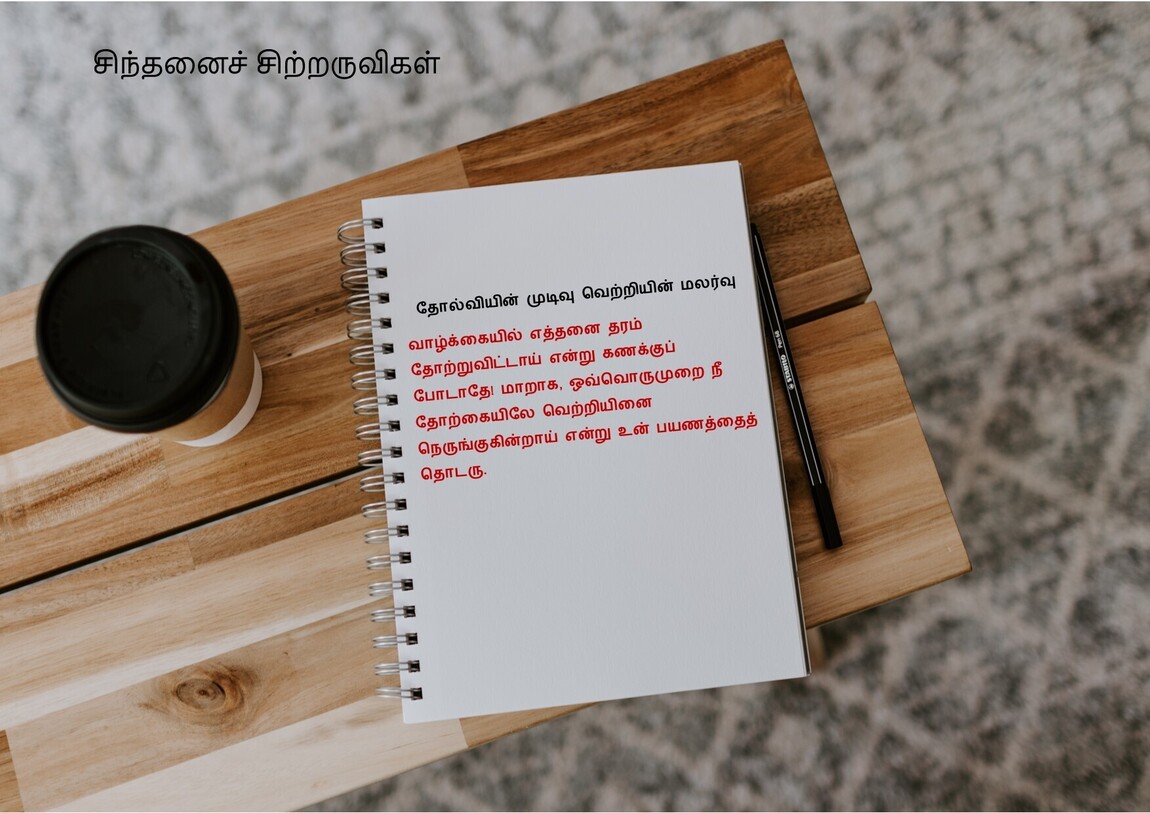 சிந்தனைச் சிற்றருவிகள்
தோல்வியின் முடிவு வெற்றியின் மலர்வு
வாழ்க்கையில் எத்தனை தரம்
தோற்றுவிட்டாய் என்று கணக்குப்
போடாதே! மாறாக, ஒவ்வொருமுறை நீ
தோற்கையிலே வெற்றியினை
நெருங்குகின்றாய் என்று உன் பயணத்தைத்
தொடரு.
STABILO